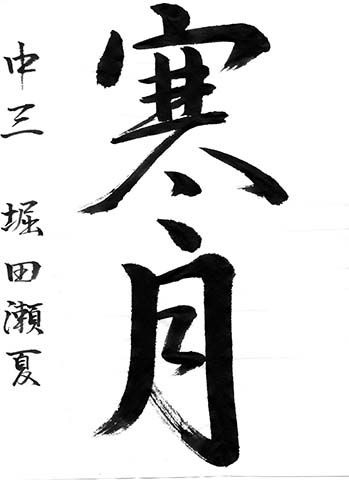 寒月
中三 堀田瀬夏